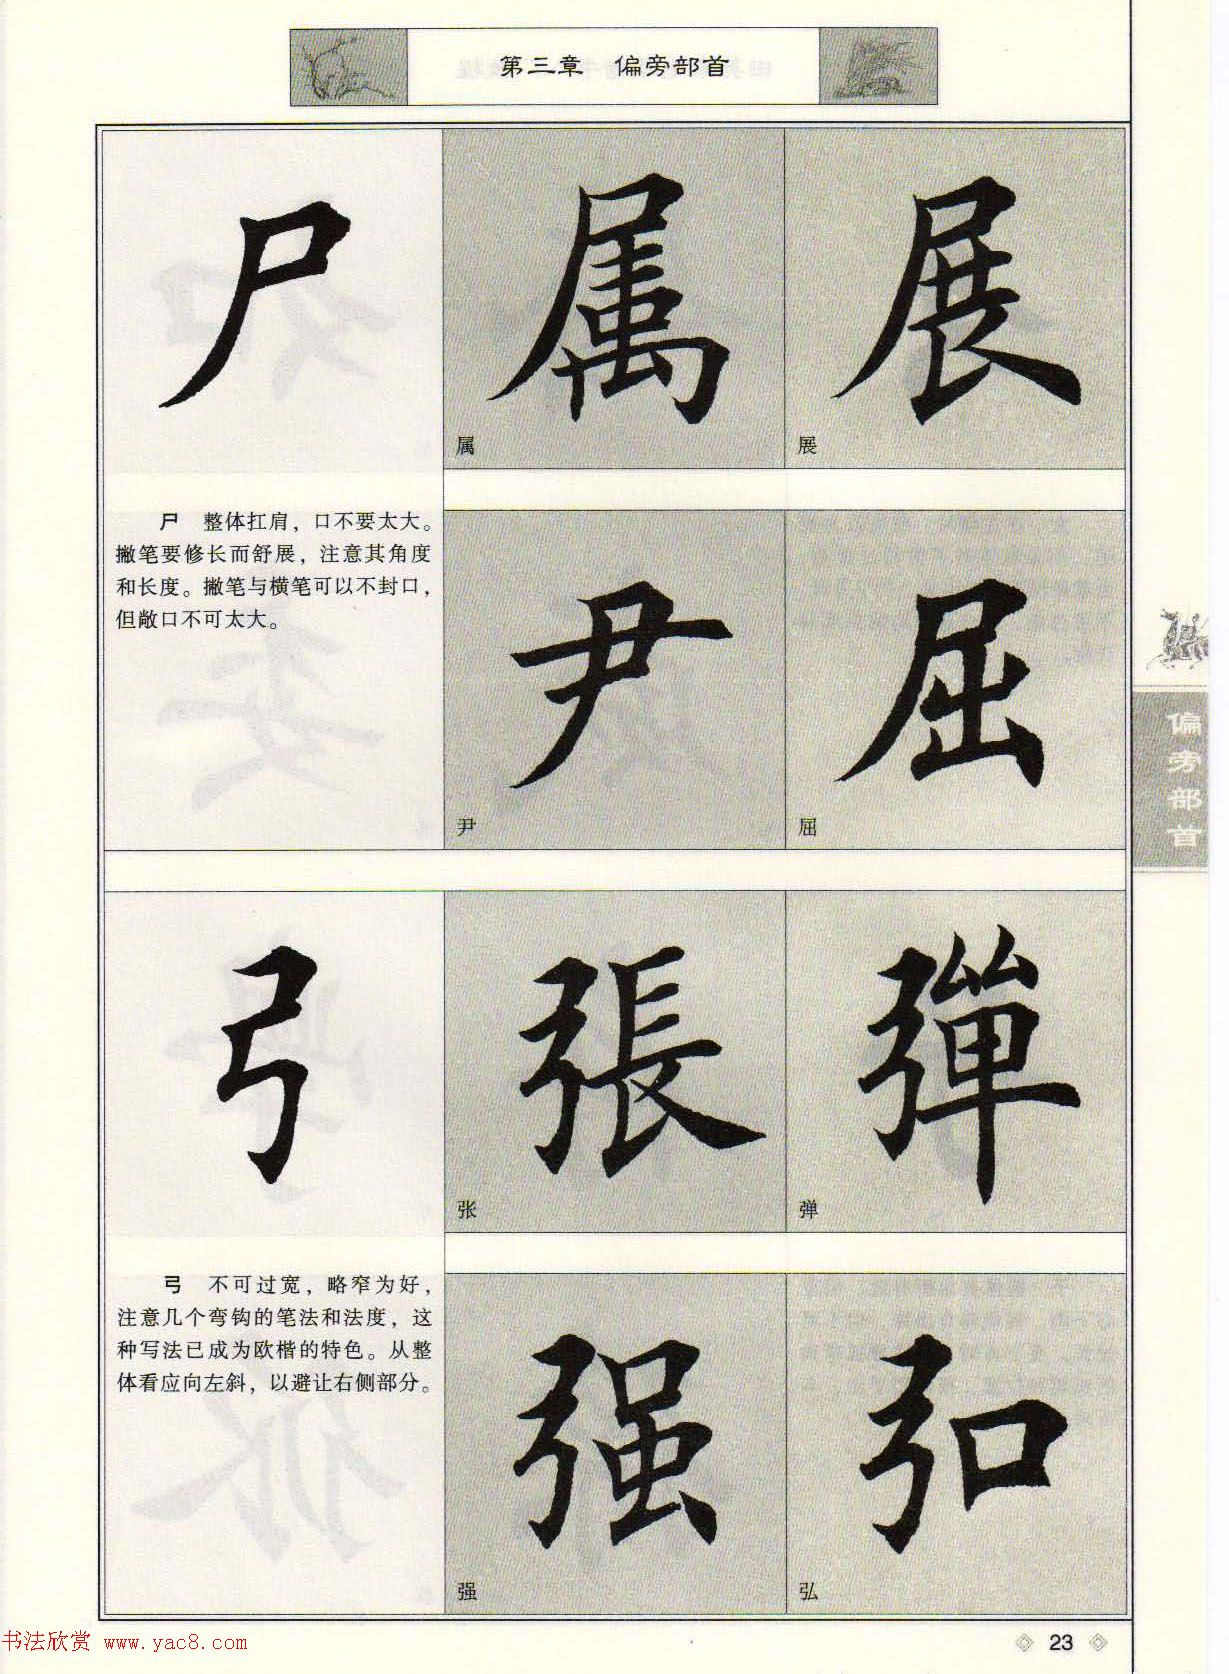 第三章 偏旁部首
尸 属 展
属 展
尸 整体扛肩，口不要太大。
撇笔要修长而舒展，注意其角度
和长度。撇笔与横笔可以不封口，
但敞口不可太大。
尹 屈
尹 屈
偏旁部首
弓 張 彈
张 弹
弓 不可过宽，略窄为好，
注意几个弯钩的笔法和法度，这
种写法已成为欧楷的特色。从整
体看应向左斜，以避让右侧部分。
强 弘
强 弘
23
书法欣赏 www.yac8.com